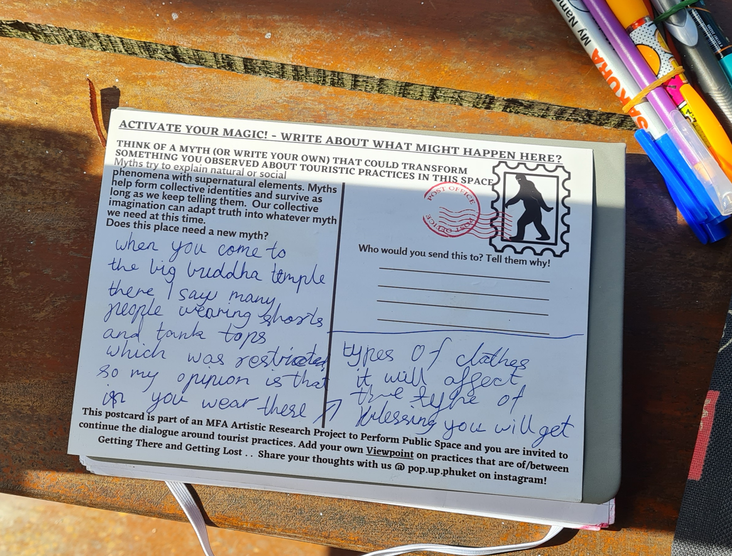 ACTIVATE YOUR MAGIC! - WRITE ABOUT WHAT MIGHT HAPPEN HERE?
THINK OF A MYTH (OR WRITE YOUR OWN) THAT COULD TRANSFORM
SOMETHING YOU OBSERVED ABOUT TOURISTIC PRACTICES IN THIS SPACE
Myths try to explain natural or social
phenomena with supernatural elements. Myths
help form collective identities and survive as
long as we keep telling them. Our collective
imagination can adapt truth into whatever myth
we need at this time.
Does this place need a new myth?
when you come to
the big buddha temple
there I saw many
people wearing shorts
and tank tops
which was restricted
so my opinion is that
if you wear these
POST OFFICE
POST OFFICE
Who would you send this to? Tell them why!
types of clothes
it will affect
the type of
blessing you will get
This postcard is part of an MFA Artistic Research Project to Perform Public Space and you are invited to
continue the dialogue around tourist practices. Add your own Viewpoint on practices that are of/between
Getting There and Getting Lost . . Share your thoughts with us @ pop.up.phuket on instagram!
SAKURA
My Name